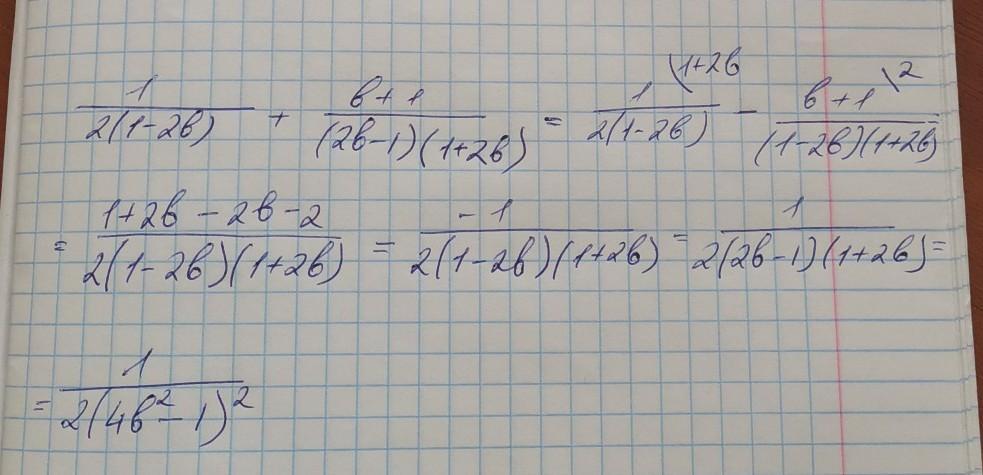 1/(2(1-2b)) + (b+1)/((2b-1)(1+2b)) = 1\1+2b/(2(1-2b)) - (b+1)\2/((1-2b)(1+2b)) =
= (1+2b-2b-2)/(2(1-2b)(1+2b)) = -1/(2(1-2b)(1+2b)) = 1/(2(2b-1)(1+2b)) =
= 1/(2(4b²-1)²)